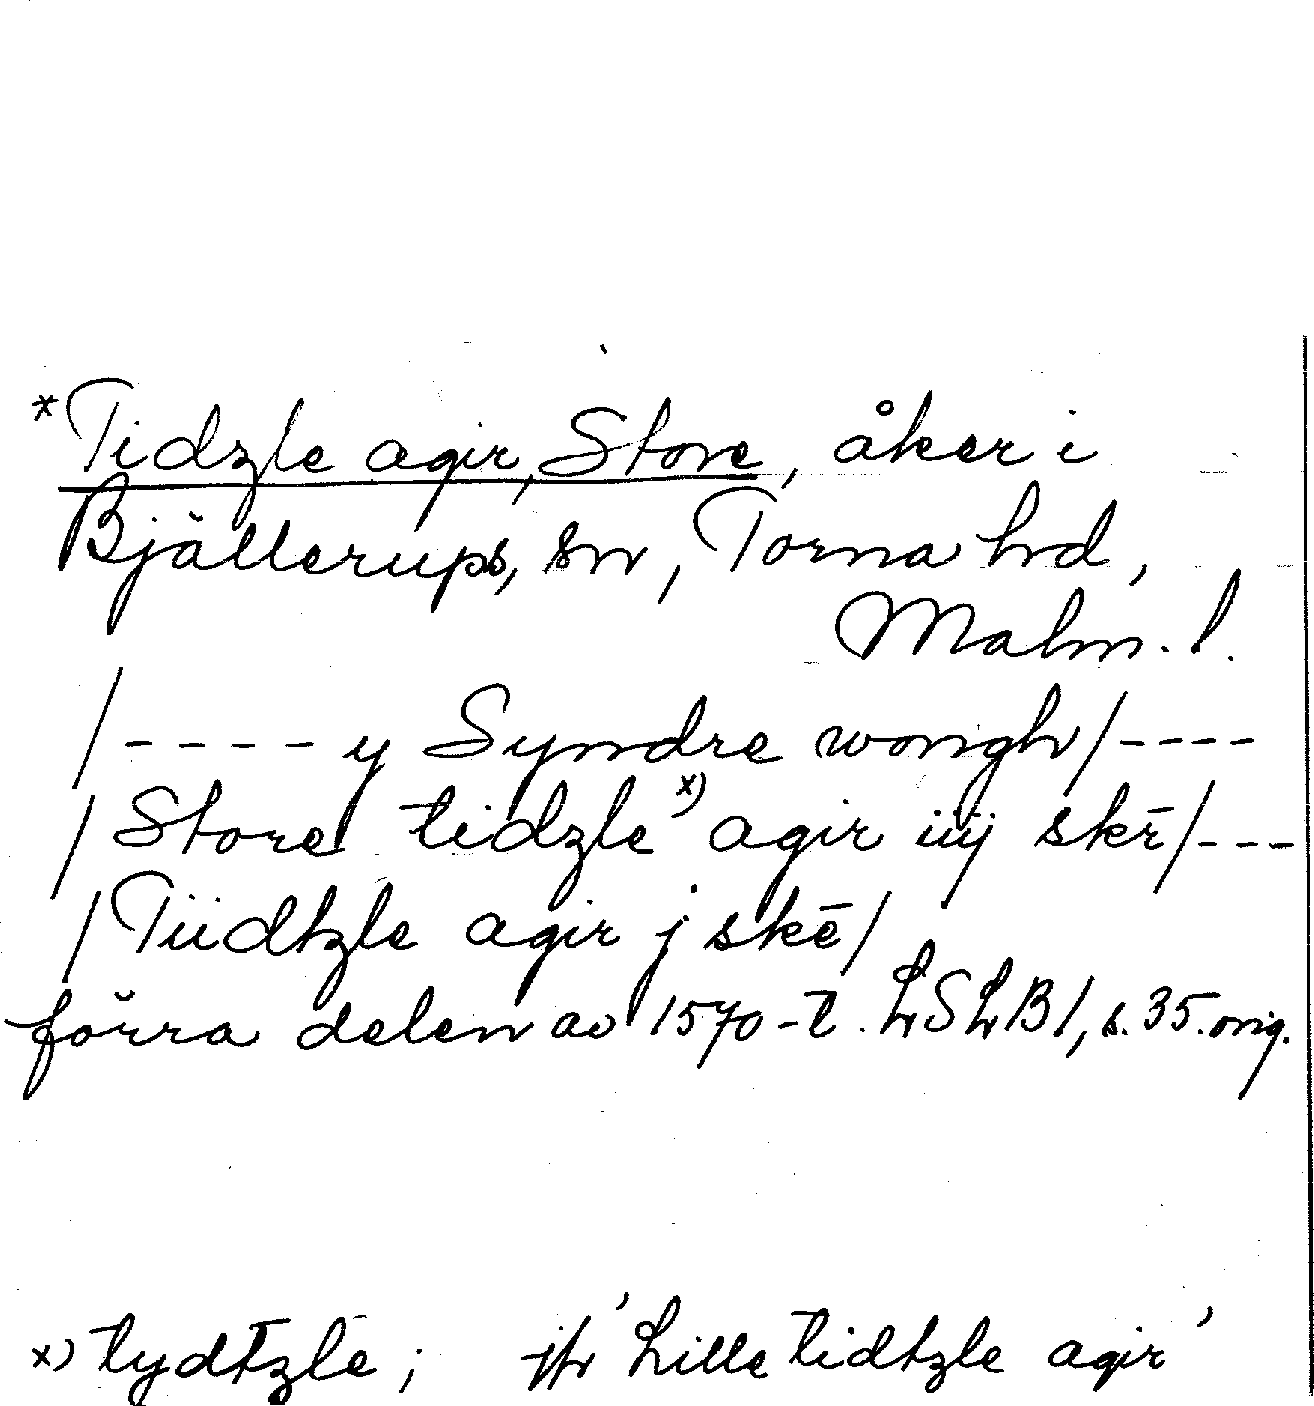 *Tidzle agir, Store, åker i
Bjällerups, sn, Torna hrd,
Malm. l.
/---- y Syndre wongh/----
/Store tidzle x) agir iiij skē/---
/Tiidtzle agir j skē/
förra delen av 1570-t. LSLB1, s. 35. orig.
x) tydtzle; jfr 'Lille tidtzle agir'